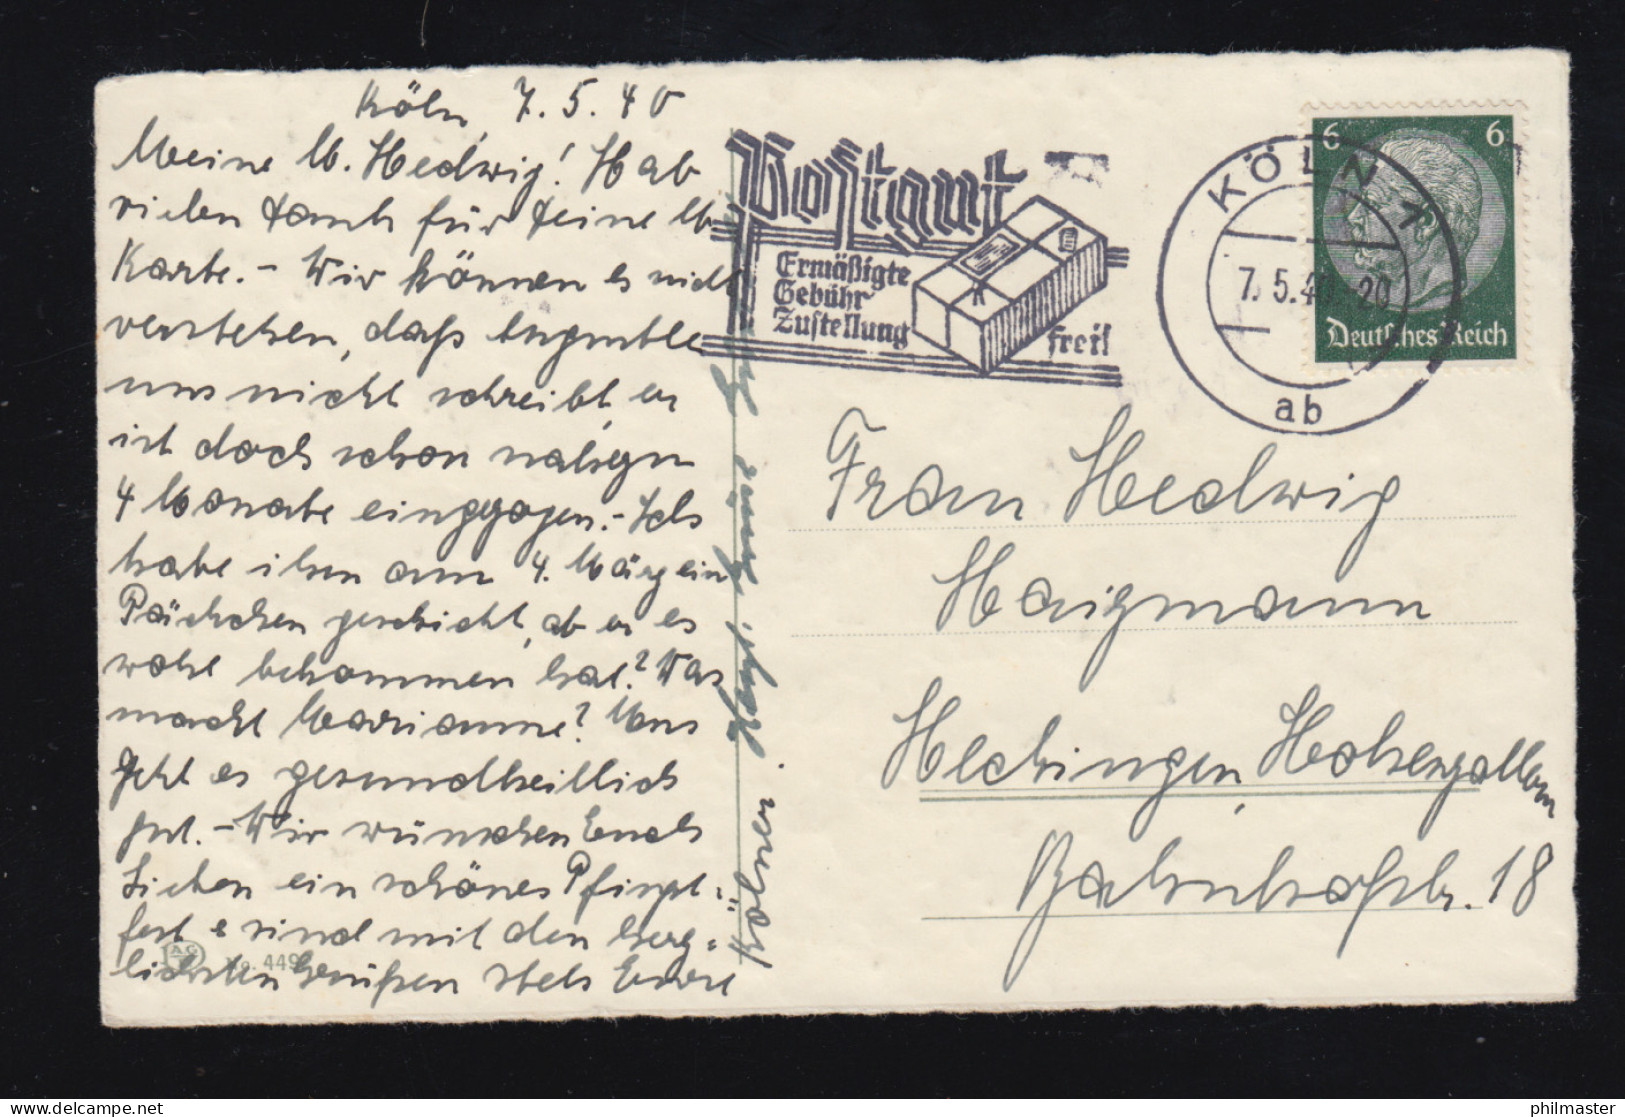 Köln, 7.5.40
Meine lb. Hedwig! Hab
vielen Dank für Deine lb.
Karte. - Wir können es nicht
verstehen, daß
uns nicht schreibt, er
ist doch schon
4 Monate eingezogen. - Ich
habe ihm am 4. März ein
Päckchen geschickt, ob er es
wohl bekommen hat? Was
macht Marianne? Uns
geht es gesundheitlich
gut. - Wir wünschen Euch
Lieben ein schönes Pfingst=
fest & sind mit den herz=
lichsten Grüßen stets Eure
Kölner.
No. 449
Postgut
Ermäßigte
Gebühr
Zustellung
frei!
KÖLN 1
7.5.40 20
ab
6 6
Deutsches Reich
Frau Hedwig
Haizmann
Hechingen, Hohenzollern
Bahnhofstr. 18
philmaster